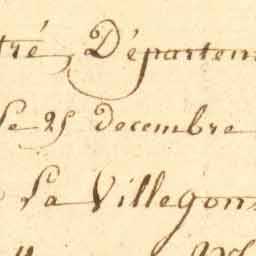 tré, Départem
le 25 decembre
La Villegon